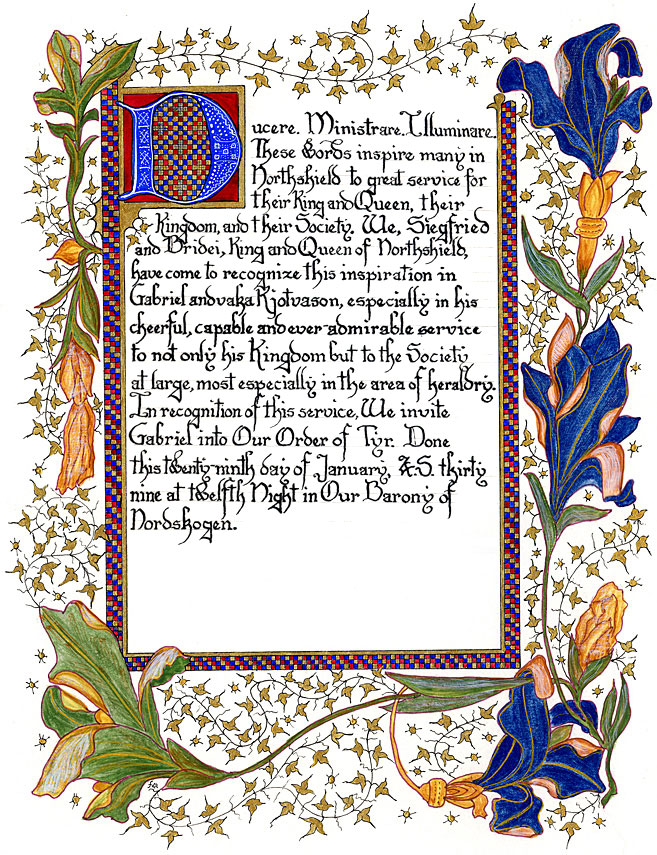 Ducere. Ministrare. Illuminare.
These words inspire many in
Northshield to great service for
their King and Queen, their
Kingdom, and their Society. We, Siegfried
and Bridei, King and Queen of Northshield,
have come to recognize this inspiration in
Gabriel andvaka Kjotvason, especially in his
cheerful, capable and ever admirable service
to not only his Kingdom but to the Society
at large, most especially in the area of heraldry.
In recognition of this service, We invite
Gabriel into Our Order of Tyr. Done
this twenty-ninth day of January, A.S. thirty
nine at twelfth Night in Our Barony of
Nordskogen.